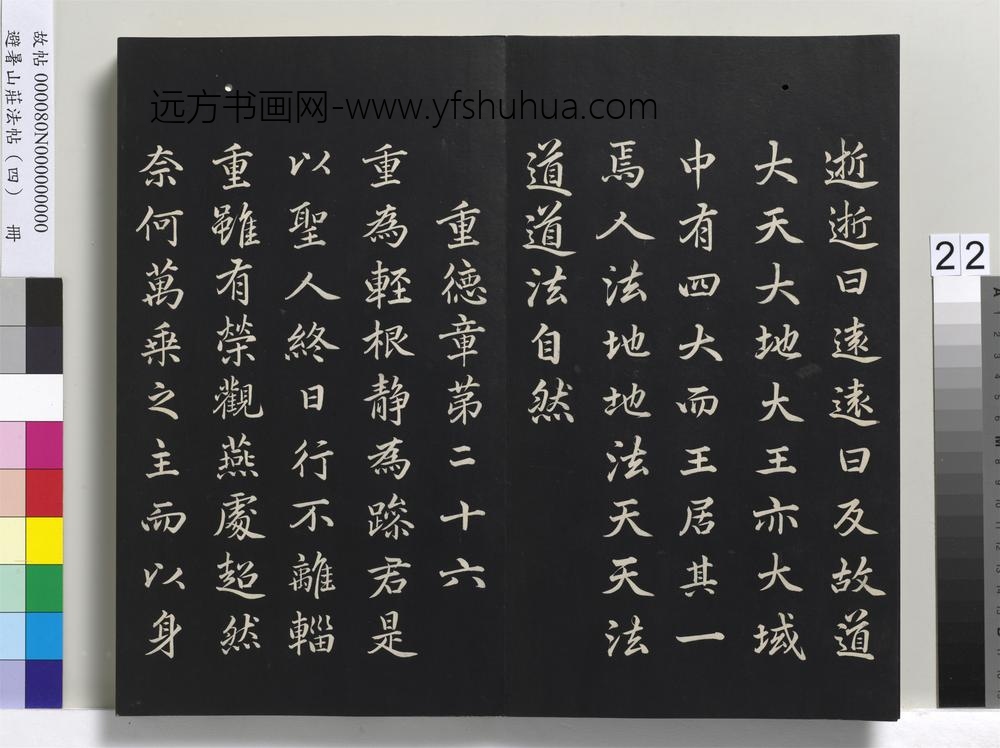 逝逝曰遠遠曰反故道
大天大地大王亦大域
中有四大而王居其一
焉人法地地法天天法
道道法自然
重德章第二十六
重為輕根靜為躁君是
以聖人終日行不離輜
重雖有榮觀燕處超然
奈何萬乘之主而以身
远方书画网-www.yfshuhua.com
故帖 000080N000000000
避暑山莊法帖(四) 冊
22